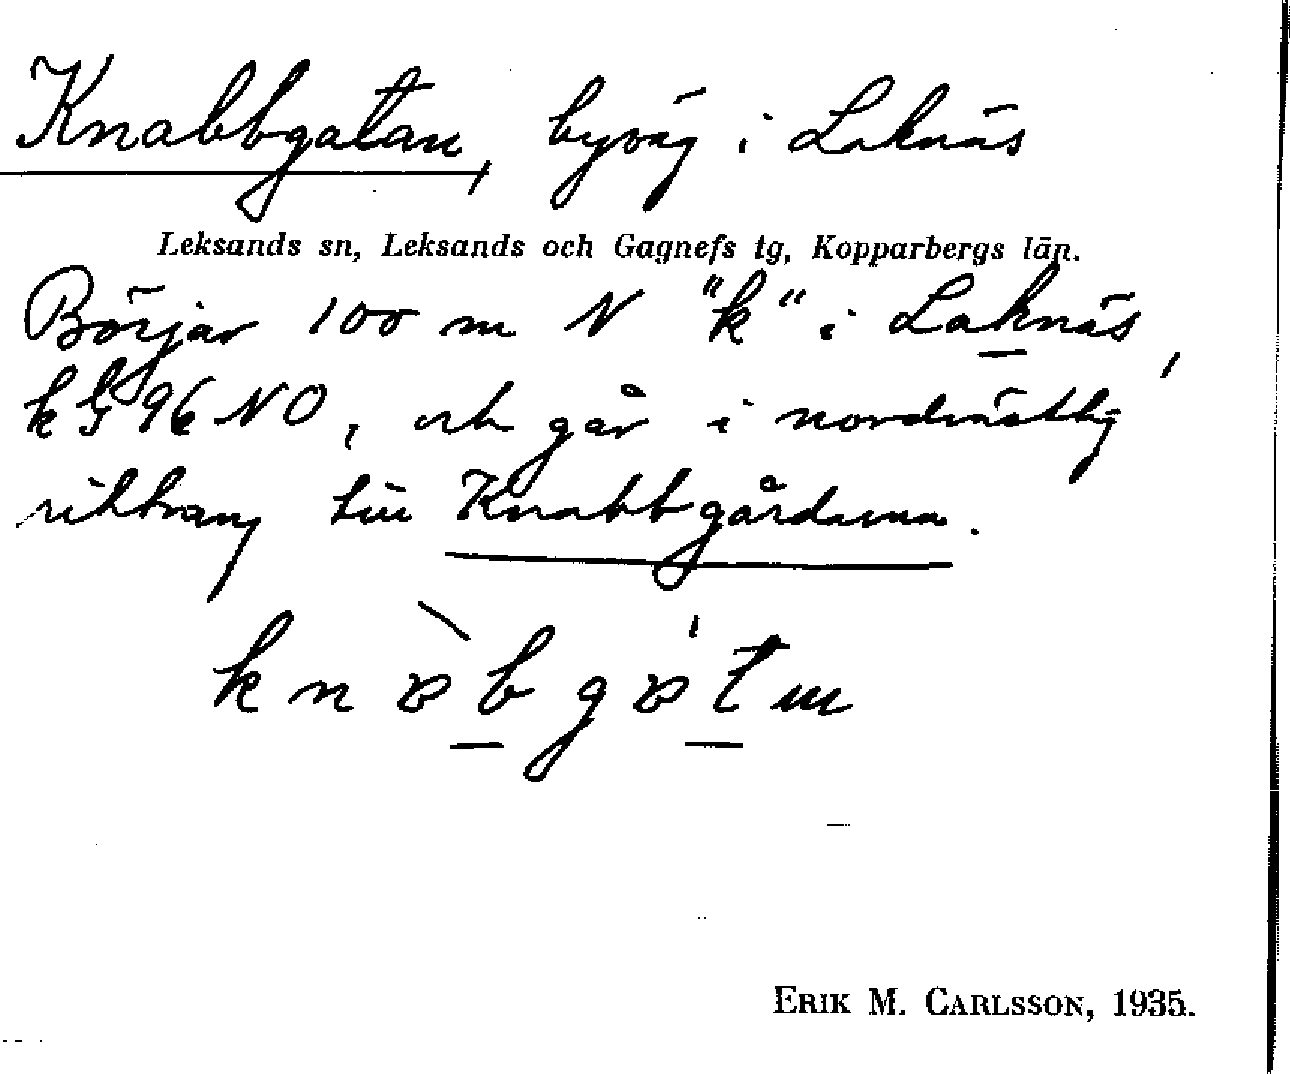 Knabbgatan, byväg i Laknäs
Leksands sn, Leksands och Gagnefs tg, Kopparbergs län.
Börjar 100 m N "k" i Laknäs,
k G 96 NO, och går i nordvästlig
riktning till Knabbgårdarna.
ERIK M. CARLSSON, 1935.